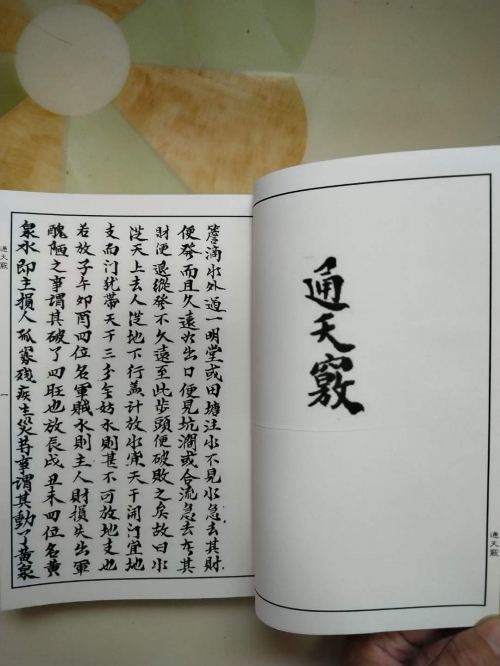 通天竅
通天竅
簷滴水外過一明堂或田塘注水不見水急去其財
便發而且久遠水出口便見坑澗或合流急去者其
財便退縱發不久遠至此步頭便破敗之矣故曰水
從天上去人從地下行蓋計放水電天干開门宜地
支而门犹帶天干三分無妨水則甚不可放地支也
若放子午卯酉四位名軍賊水則主人財損失出軍
醜陋之事謂其破了四旺也放辰戌丑未四位名黄
泉水即主損人孤寡残疾生災等事謂其動了黄泉
通天竅
一